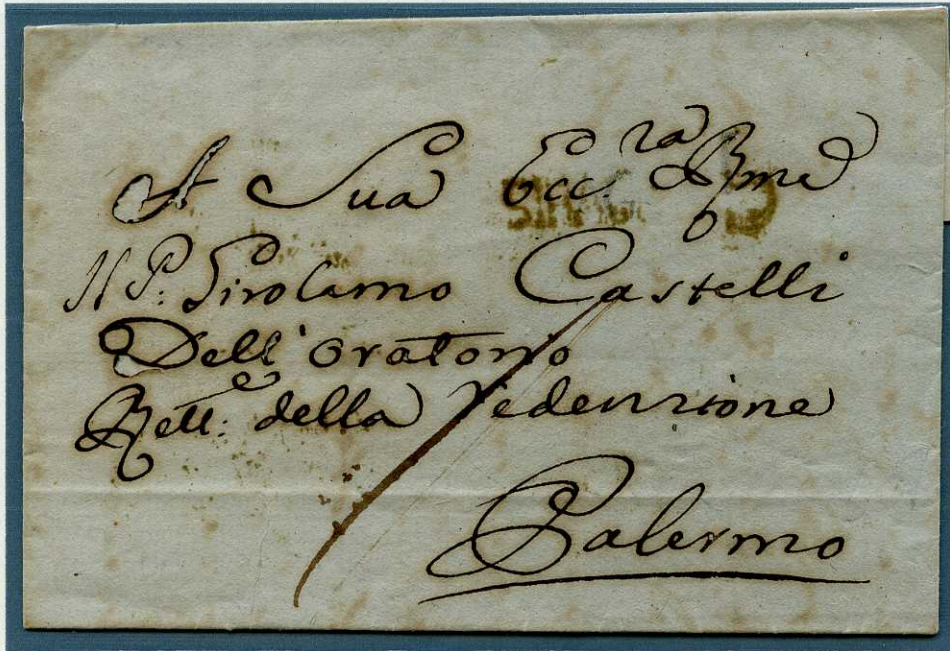 A Sua Ecc.ra Rma
Il P. Girolamo Castelli
Dell' Oratorio
Rett.e della Redenzione
Palermo